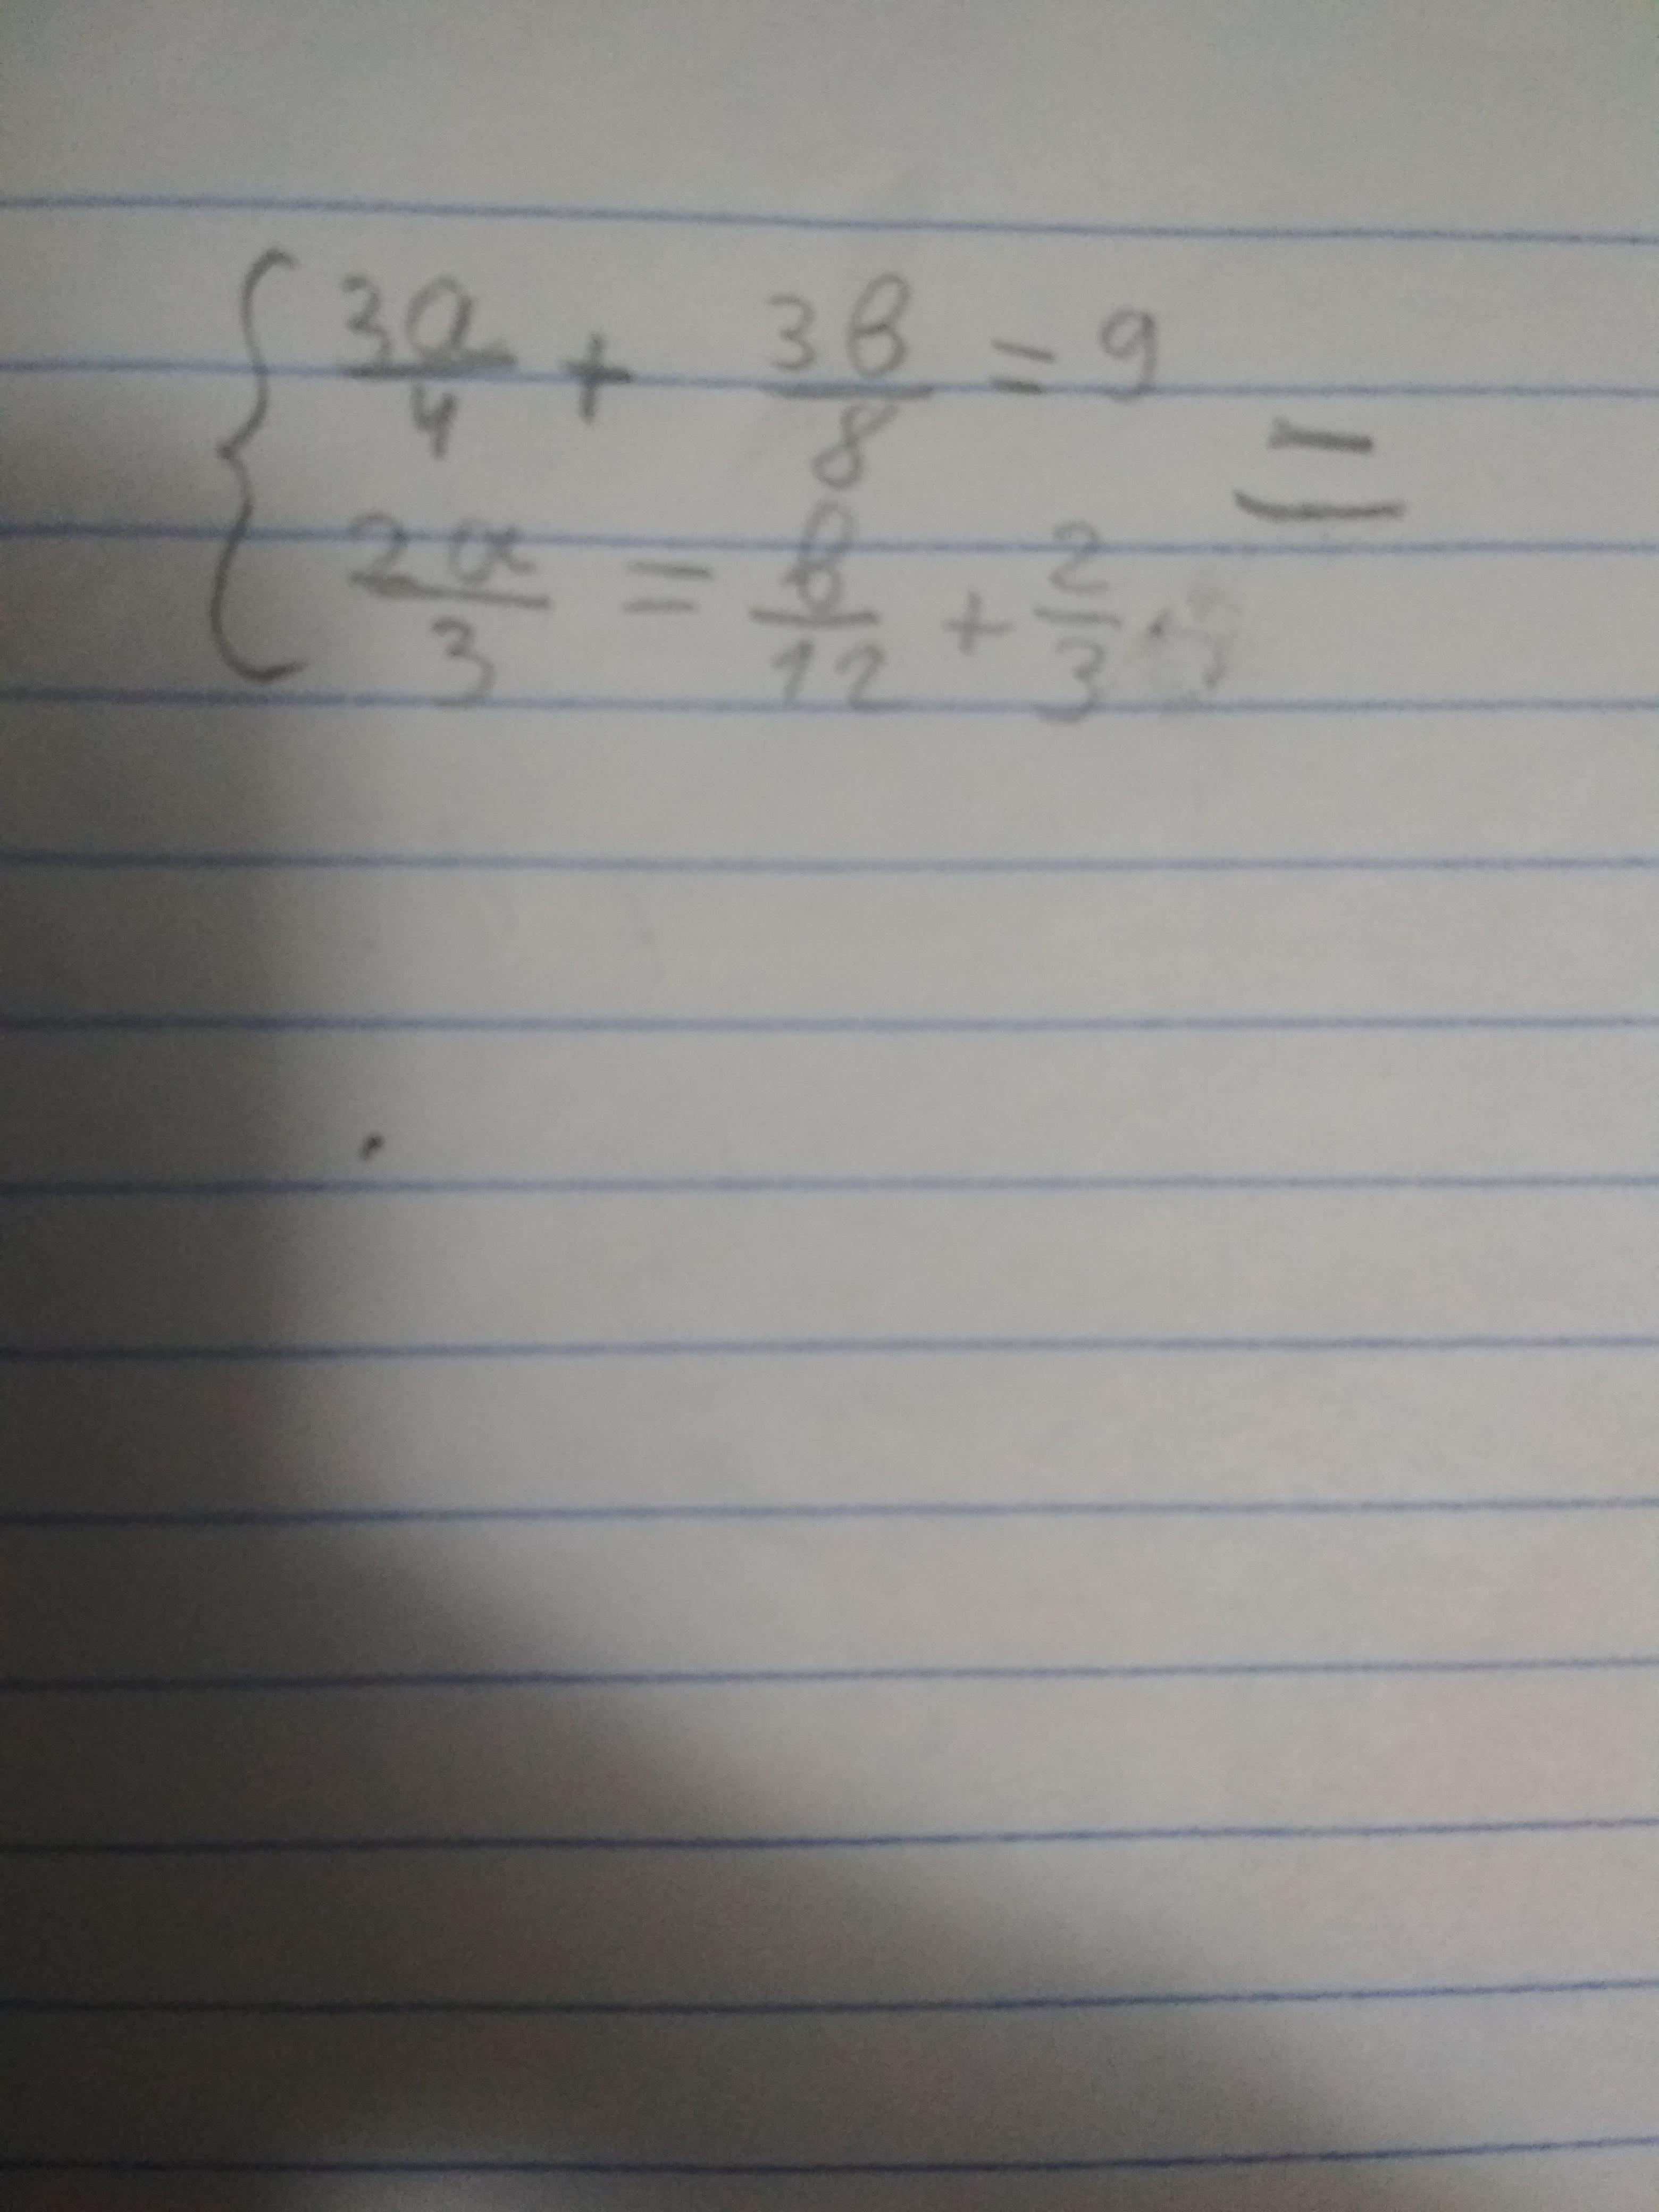 3a/4 + 3b/8 = 9
=
2a/3 = b/12 + 2/3 .